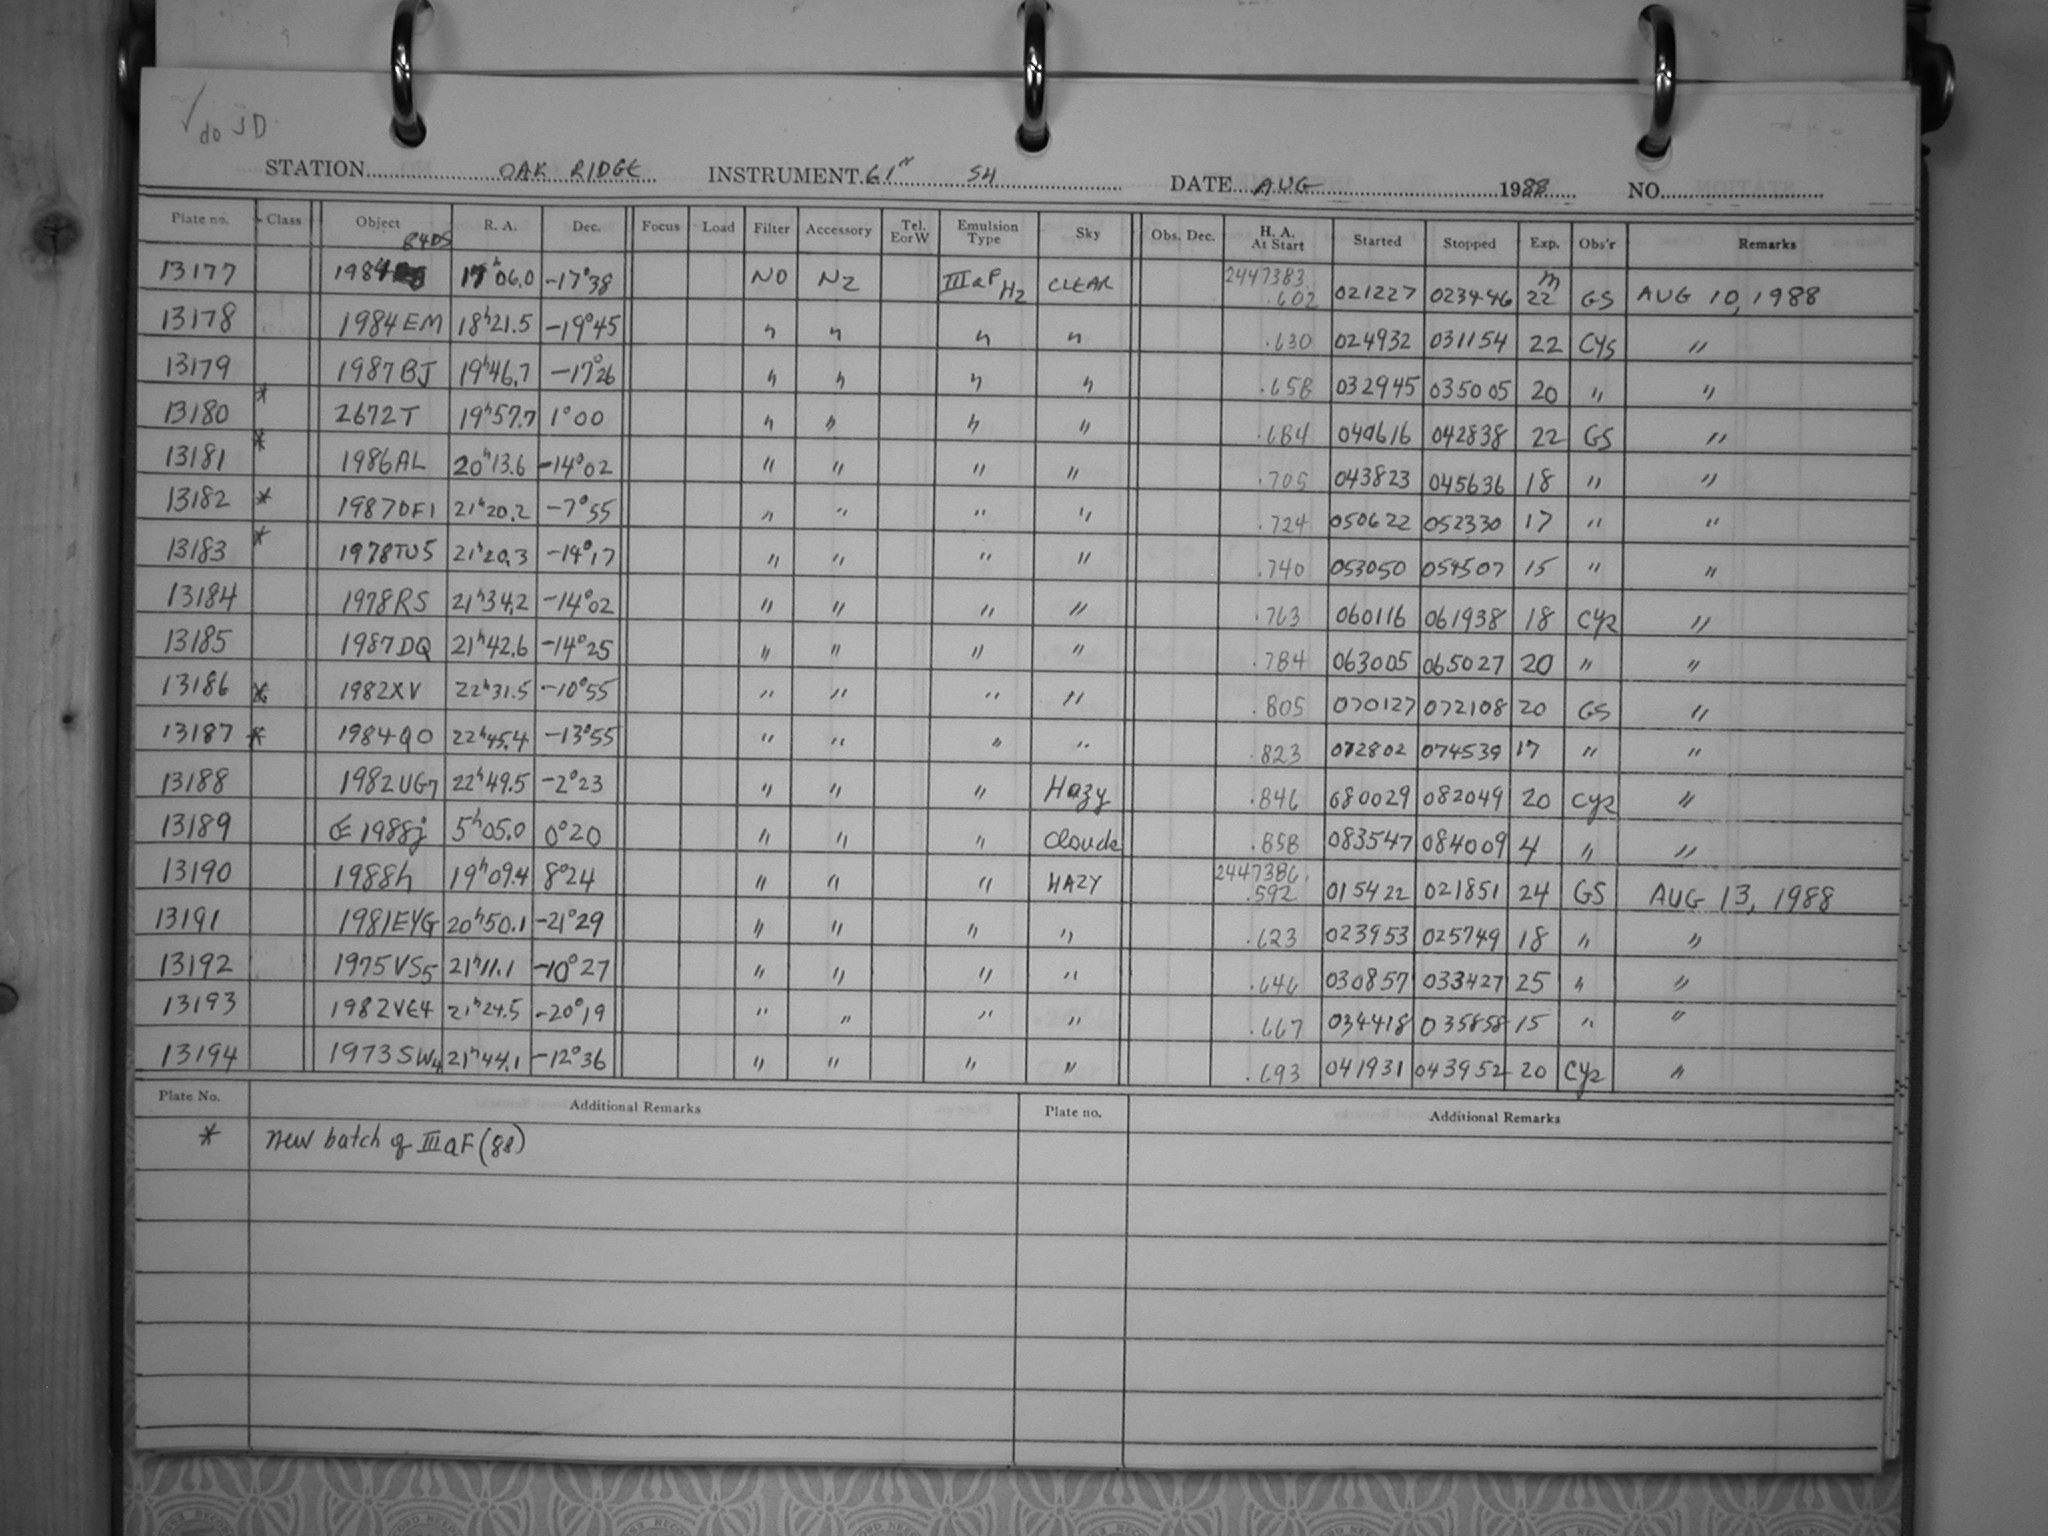 √ do JD
STATION OAK RIDGE INSTRUMENT 61" SH DATE AUG 1988 NO.
Plate no. Class Object R. A. Dec. Focus Load Filter Accessory Tel. E or W Emulsion Type Sky Obs. Dec. H. A. At Start Started Stopped Exp. Obs'r Remarks
84DS
13177 1984 17h06.0 -17°38 NO N2 IIIaF H2 CLEAR 2447383. .602 021227 023446 22m GS AUG 10, 1988
13178 1984EM 18h21.5 -19°45 " " " " .630 024932 031154 22 CYS "
13179 1987BJ 19h46.7 -17°26 " " " " .658 032945 035005 20 " "
13180 * 2672T 19h57.7 1°00 " " " " .684 040616 042838 22 GS "
13181 * 1986AL 20h13.6 -14°02 " " " " .705 043823 045636 18 " "
13182 * 1987DF1 21h20.2 -7°55 " " " " .724 050622 052330 17 " "
13183 * 1978TU5 21h20.3 -14°17 " " " " .740 053050 054507 15 " "
13184 1978RS 21h34.2 -14°02 " " " " .763 060116 061938 18 CYS "
13185 1987DQ 21h42.6 -14°25 " " " " .784 063005 065027 20 " "
13186 * 1982XV 22h31.5 -10°55 " " " " .805 070127 072108 20 GS "
13187 * 1984QO 22h45.4 -13°55 " " " " .823 072802 074539 17 " "
13188 1982UG7 22h49.5 -2°23 " " " Hazy .846 080029 082049 20 CYS "
13189 1988j 5h05.0 0°20 " " " Clouds .858 083547 084009 4 " "
13190 1988h 19h09.4 8°24 " " " HAZY 2447386. .592 015422 021851 24 GS AUG 13, 1988
13191 1981EYG 20h50.1 -21°29 " " " " .623 023953 025749 18 " "
13192 1975VS5 21h11.1 -10°27 " " " " .646 030857 033427 25 " "
13193 1982VE4 21h24.5 -20°19 " " " " .667 034418 035858 15 " "
13194 1973SW4 21h44.1 -12°36 " " " " .693 041931 043952 20 CYS "
Plate No. Additional Remarks Plate no. Additional Remarks
* new batch of IIIaF (88)